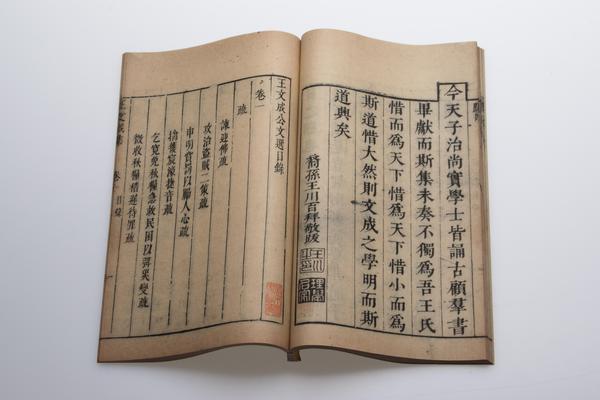 今天子治尚實學士皆誦古顧羣書
畢獻而斯集未奏不獨爲吾王氏
惜而爲天下惜爲天下惜小而爲
斯道惜大然則文成之學明而斯
道興矣
裔孫王川百拜敬跋
王文成公文選目錄
卷一
疏
諫迎佛疏
攻治盜賊二策疏
申明賞罰以勵人心疏
擒獲宸濠捷音疏
乞寬免秋糧急救民困以弭災變疏
徵收秋糧稽遲待罪疏